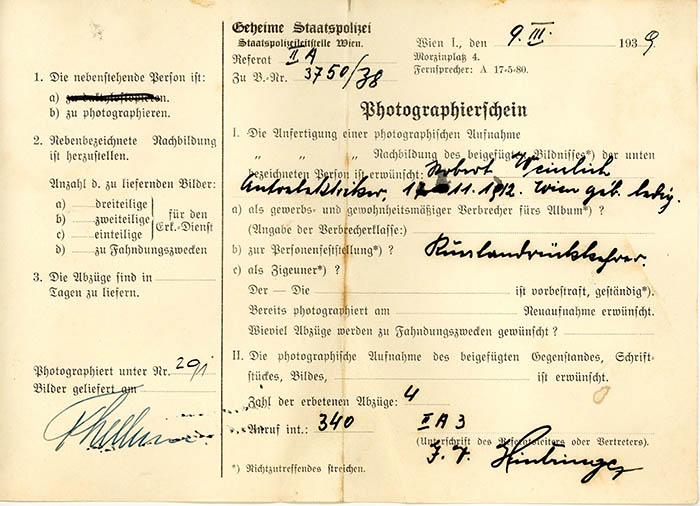 1. Die nebenstehende Person ist:
a) zu daktyloskopieren.
b) zu photographieren.
2. Nebenbezeichnete Nachbildung
ist herzustellen.
Anzahl d. zu liefernden Bilder:
a) dreiteilige
b) zweiteilige
c) einteilige
für den
Erk.-Dienst
d) zu Fahndungszwecken
3. Die Abzüge sind in
Tagen zu liefern.
Photographiert unter Nr. 291
Bilder geliefert am
Geheime Staatspolizei
Staatspolizeileitstelle Wien.
Referat II A
Zu B.-Nr. 3750/38
Wien I., den 9. III. 1939
Morzinplatz 4.
Fernsprecher: A 17-5-80.
Photographierschein
I. Die Anfertigung einer photographischen Aufnahme
„ „ Nachbildung des beigefügten Bildnisses*) der unten
bezeichneten Person ist erwünscht: Robert Weinlich
11. 1912. Wien geb. ledig.
a) als gewerbs- und gewohnheitsmäßiger Verbrecher fürs Album*) ?
(Angabe der Verbrecherklasse:)
b) zur Personenfeststellung*) ? Russlandrückkehrer.
c) als Zigeuner*) ?
Der — Die ist vorbestraft, geständig*).
Bereits photographiert am Neuaufnahme erwünscht.
Wieviel Abzüge werden zu Fahndungszwecken gewünscht ?
II. Die photographische Aufnahme des beigefügten Gegenstandes, Schrift-
stückes, Bildes, ist erwünscht.
Zahl der erbetenen Abzüge: 4
Anruf int.: 340 II A 3
(Unterschrift des Referatsleiters oder Vertreters).
*) Nichtzutreffendes streichen.